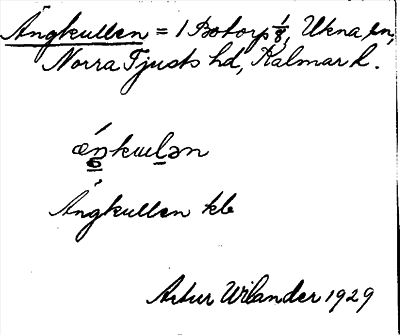 Ängkullen = 1 Botorp 1/8, Ukna sn,
Norra Tjusts hd, Kalmar l.
Ängkullen kb
Artur Wilander 1929